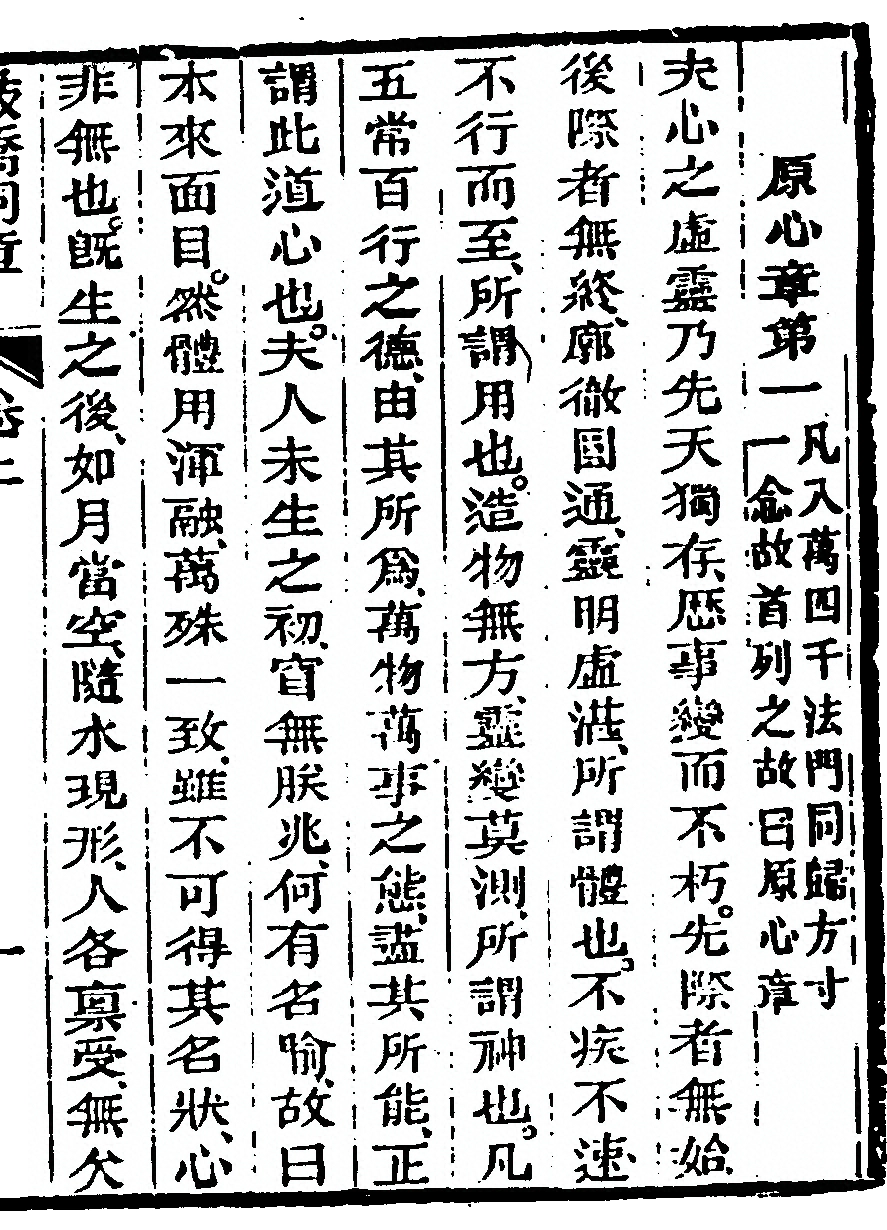 原心章第一
凡八萬四千法門同歸方寸
一念故首列之故曰原心章
夫心之虛靈乃先天獨存、歷事變而不朽。先際者無始
後際者無終、廓徹圓通、靈明虛湛、所謂體也。不疾不速
不行而至、所謂用也。造物無方、靈變莫測、所謂神也。凡
五常百行之德、由其所爲、萬物萬事之態、盡其所能、正
謂此道心也。夫人未生之初、窅無朕兆、何有名喻、故曰
本來面目。然體用渾融、萬殊一致、雖不可得其名狀、心
非無也。旣生之後、如月當空、隨水現形、人各稟受、無欠
一